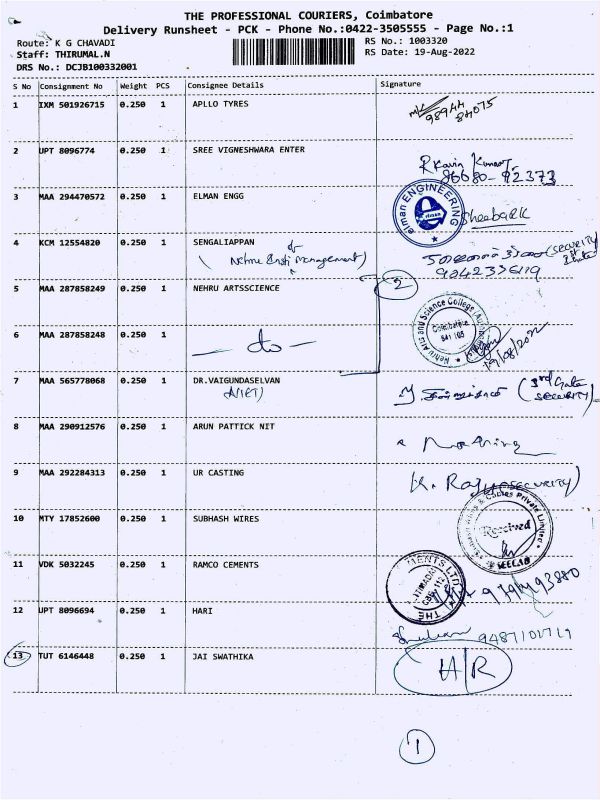 THE PROFESSIONAL COURIERS, Coimbatore
Delivery Runsheet - PCK - Phone No.:0422-3505555 - Page No.:1
Route: K G CHAVADI
Staff: THIRUMAL.N
DRS No.: DCJB100332001
RS No.: 1003320
RS Date: 19-Aug-2022
S No Consignment No Weight PCS Consignee Details Signature
1 IXM 501926715 0.250 1 APLLO TYRES
98944
84075
2 UPT 8096774 0.250 1 SREE VIGNESHWARA ENTER
R Kavin Kumar
86680-92373
3 MAA 294470572 0.250 1 ELMAN ENGG
elman ENGINEERING
elman
4 KCM 12554820 0.250 1 SENGALIAPPAN
Nehru Insti Management)
(SECURITY
1st Gate
9042336119
5 MAA 287858249 0.250 1 NEHRU ARTSSCIENCE
2
Nehru Arts and Science College
Coimbatore
641 105
6 MAA 287858248 0.250 1
- do -
19/08/2022
7 MAA 565778068 0.250 1 DR.VAIGUNDASELVAN
(NIET)
(3rd Gate
SECURITY)
8 MAA 290912576 0.250 1 ARUN PATTICK NIT
9 MAA 292284313 0.250 1 UR CASTING
K. Raju (security)
10 MTY 17852600 0.250 1 SUBHASH WIRES
& Cables Private Limited
Received
11 VDK 5032245 0.250 1 RAMCO CEMENTS
12 UPT 8096694 0.250 1 HARI
13 TUT 6146448 0.250 1 JAI SWATHIKA
H/R
1